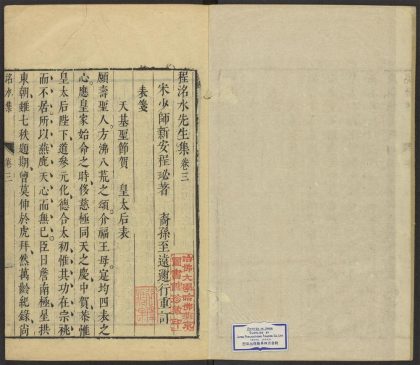 程洺水先生集 卷三
宋少師新安程珌著 裔孫至遠 行重訂
表箋
天基聖節賀 皇太后表
願壽聖人方沸八荒之頌介福王母寔均四表之
心應皇家始命之時侈慈極同天之慶中賀恭惟
皇太后陛下道參元化德合太初惟其功在宗祧
而不居所以燕鹿天心而無已臣日詹南極星拱
東朝雖七秩踰期曾莫伸於虎拜然萬齡紀錄尚
洺水集 卷三
哈佛大學哈佛燕京
圖書館珍藏印